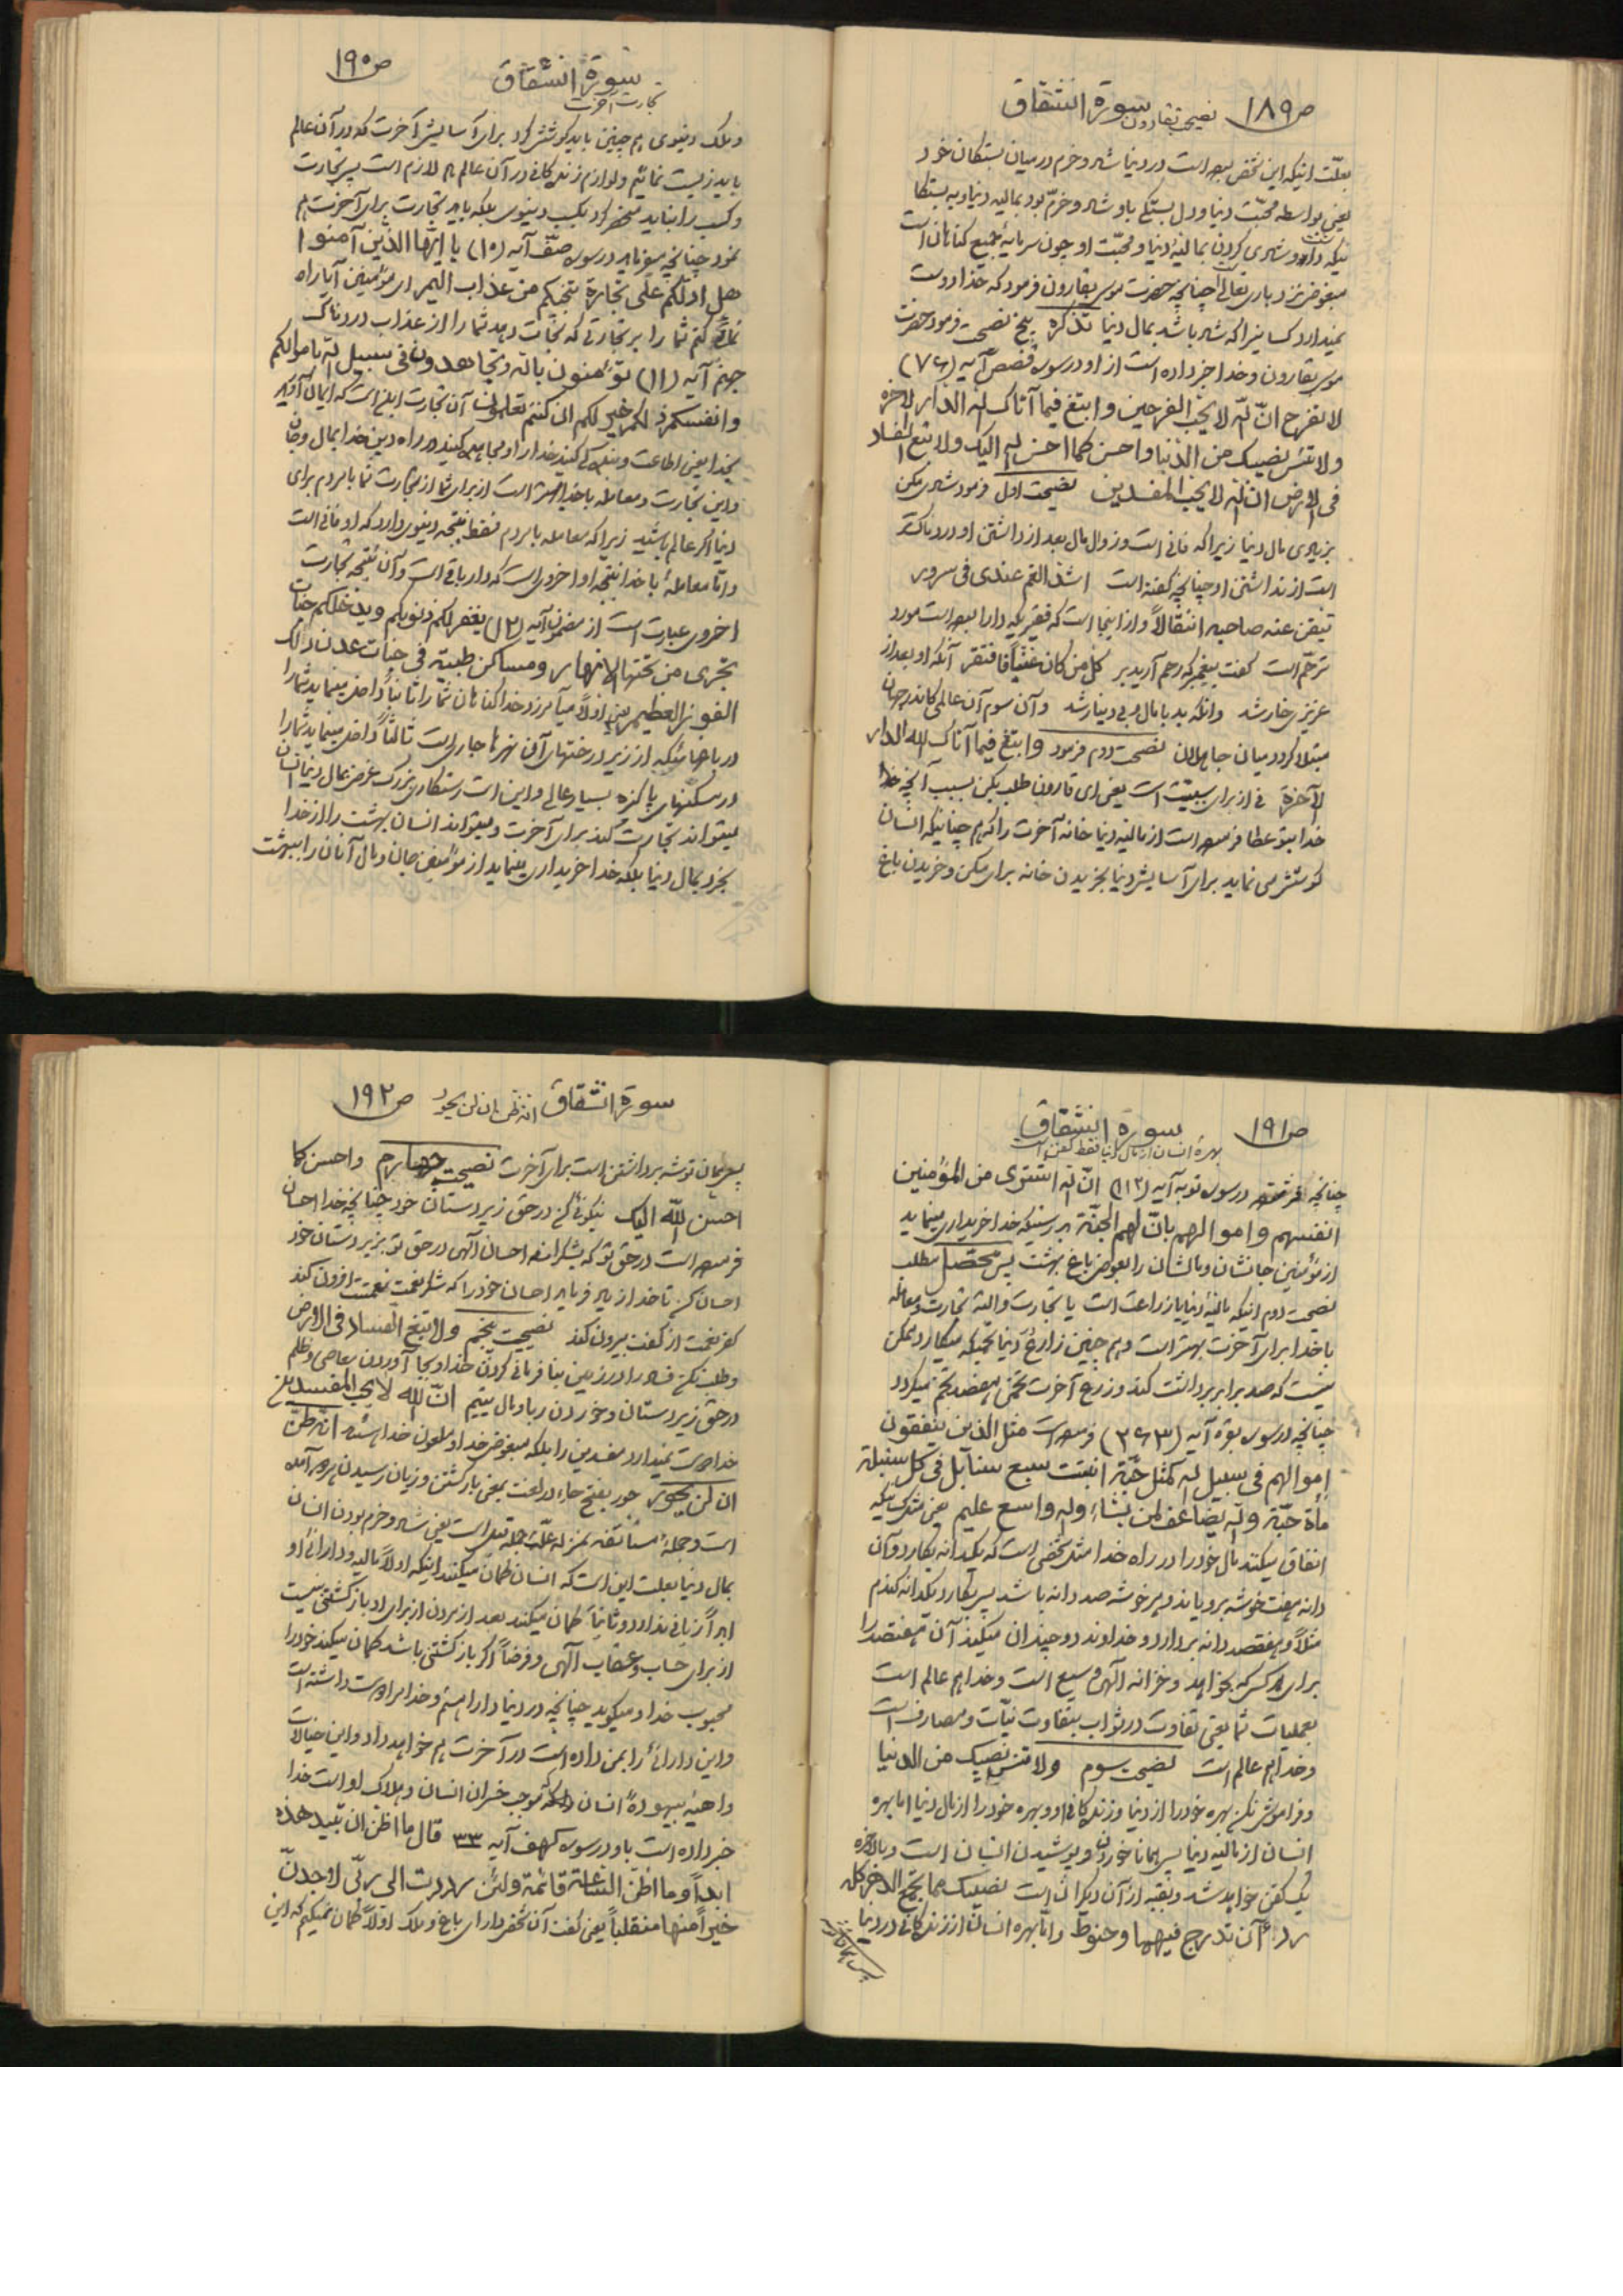 ص۱۸۹ نصیحت بقارون سورة انشقاق
بعلّت اینکه این شخص بوده است در دنیا شاد و خرم در میان بستگان خود
یعنی بواسطه محبّت دنیا و دل بستگی باو شاد و خرّم بود بمالیه دنیا و به بستگا
نیکه داشت و شادی کردن بمالیهٔ دنیا و محبّت او چون سرمایهٔ جمیع گناهان است
مبغوض نزد باریتعالی است چنانچه حضرت موسی بقارون فرمود که خدا دوست
نمیدارد کسانیرا که شاد باشد بمال دنیا تذکره پنج نصیحت فرمود حضرت
موسی بقارون و خدا خبر داده است از او در سوره قصص آیه (۷۶)
لا تفرح انّ اللّه لا یحب الفرحین و ابتغ فیما آتاک اللّه الدار الاخرة
ولا تنس نصیبک من الدّنیا و احسن کما احسن اللّه الیک ولا تبغ الفساد
فی الارض ان اللّه لا یحب المفسدین نصیحت اول فرمود شادی مکن
بزیادی مال دنیا زیرا که فانی است و زوال مال بعد از داشتن او دردناک‌تر
است از نداشتن او چنانچه گفته است اشدّ الغم عندی فی سرور
تیقن عنه صاحبه انتقالاً و از اینجا است که فقیریکه دارا بوده است مورد
ترحّم است گفت پیغمبر که رحم آرید بر کل من کان غنیّاً فافتقر آنکه او بعد از
عزیزی خار شد وانکه بد با مال و بی دینار شد و آن سوم آن عالمی کاندر جهان
مبتلا گردد میان جاهلان نصیحت دوم فرمود و ابتغ فیما آتاک اللّه الدار
الآخرة فی از برای سببیّت است یعنی ای قارون طلب بکن بسبب آنچه
خدا بتو عطا فرموده است از مالیه دنیا خانه آخرت را که هم چنانیکه انسان
کوشش می نماید برای آسایش دنیا بخریدن خانه برای مسکن و خریدن باغ
سورة انشقاق ص۱۹۰
تجارت آخرت
و ملک دنیوی هم چنین باید کوشش کرد برای آسایش آخرت که در آن عالم
باید زیست نمائیم و لوازم زندگانی در آن عالم هم لازم است پس تجارت
و کسب را نباید منحصر کرد بکسب دنیوی بلکه باید تجارت برای آخرت هم
نمود چنانچه میفرماید در سوره صفّ آیه (۱۰) یا ایّها الذین آمنوا
هل ادلّکم علی تجارة تنجیکم من عذاب الیم ای مؤمنین آیا راه
نمائی کنم شما را بر تجارتی که نجات دهد شما را از عذاب دردناک
جهنم آیه (۱۱) تؤمنون باللّه و تجاهدون فی سبیل اللّه باموالکم
و انفسکم ذلکم خیر لکم ان کنتم تعلمون آن تجارت اینست که ایمان آورید
بخدا یعنی اطاعت و بندگی کنید خدا را و مجاهده کنید در راه دین خدا بمال و جان
و این تجارت و معامله با خدا بهتر است از برای شما از تجارت شما با مردم برای
دنیا اگر عالم باشید زیرا که معامله با مردم فقط نتیجه دنیوی دارد که او فانی است
و امّا معامله با خدا نتیجه او اخروی است که دار باقی است و آن نتیجه تجارت
اخروی عبارت است از مضمون آیه (۱۲) یغفر لکم ذنوبکم و یدخلکم جنات
تجری من تحتها الانهار و مساکن طیبة فی جنات عدن ذلک
الفوز العظیم یعنی اولاً میآمرزد خدا گناهان شما را ثانیاً داخل مینماید شما را
در باغهائیکه از زیر درختهای آن نهرها جاری است ثالثاً داخل مینماید شما را
در مسکنهای پاکیزه بسیار عالی و این است رستگاری بزرگ غرض بمال دنیا انسان
میتواند تجارت کند برای آخرت و میتواند انسان بهشت را از خدا
بخرد بمال دنیا بلکه خدا خریداری مینماید از مؤمنین جان و مال آنان را ببهشت
ص۱۹۱ سورة انشقاق
بهرهٔ انسان از مال دنیا فقط کفن است
چنانچه در سوره توبه آیه (۱۱۲) انّ اللّه اشتری من المؤمنین
انفسهم و اموالهم بانّ لهم الجنّة بدرستیکه خدا خریداری مینماید
از مؤمنین جانشان و مالشان را بعوض باغ بهشت پس محصّل مطلب
نصیحت دوم اینکه مالیهٔ دنیا یا زراعت است یا تجارت و البته تجارت و معامله
با خدا برای آخرت بهتر است و هم چنین زارع دنیا تخمیکه میکارد ممکن
نیست که صد برابر برداشت کند و زرع آخرت تخمی هفتصد تخم میگردد
چنانچه در سوره بقره آیه (۲۶۳) فرموده است مثل الذین ینفقون
اموالهم فی سبیل اللّه کمثل حبّة انبتت سبع سنابل فی کل سنبلة
مأة حبّة و اللّه یضاعف لمن یشاء و اللّه واسع علیم یعنی مثل کسانیکه
انفاق میکنند مال خود را در راه خدا مثل شخصی است که یکدانه بکارد و آن
دانه هفت خوشه برویاند و هر خوشه صد دانه باشد پس بکارد یکدانه گندم
مثلاً و هفتصد دانه بردارد و خداوند دو چندان میکند آن هفتصد را
برای هر کس که بخواهد و خزانه الهی وسیع است و خدا هم عالم است
بعملیات شما یعنی تفاوت در ثواب بتفاوت نیّات و مصارف است
و خدا هم عالم است نصیحت سوم ولا تنس نصیبک من الدنیا
و فراموش نکن بهره خود را از دنیا و زندگانی او و بهره خود را از مال دنیا اما بهره
انسان از مالیه دنیا پس همانا خوردن و پوشیدن انسان است و بالاخره
یک کفن خواهد شد و بقیه از آن دیگران است نصیبک مما تجمع الدهر کله
رداءان تدرج فیهما و حنوط و امّا بهره انسان از زندگانی در دنیا
سورة انشقاق انه ظن ان لن یحور ص۱۹۲
پس همان توشه برداشتن است برای آخرت نصیحت چهارم و احسن کما
احسن اللّه الیک نیکوئی کن در حق زیر دستان خود چنانچه خدا احسان
فرموده است در حق تو که بشکرانه احسان الهی در حق تو بزیر دستان خود
احسان کن تا خدا زیاد فرماید احسان خود را که شکر نعمت نعمتت افزون کند
کفر نعمت از کفت بیرون کند نصیحت پنجم ولا تبغ الفساد فی الارض
و طلب نکن فساد را در زمین بنا فرمانی کردن خدا و بجا آوردن معاصی و ظلم
در حق زیر دستان و خوردن ربا و مال یتیم انّ اللّه لا یحب المفسدین
خدا دوست نمیدارد مفسدین را بلکه مبغوض خدا و ملعون خدا هستند انه ظنّ
ان لن یحور حور بفتح حاء در لغت بمعنی بازگشتن و زیان رسیدن هر دو آمده
است و جمله مستأنفه بمنزله علّت جمله قبل است یعنی شاد و خرم بودن انسان
بمال دنیا بعلت این است که انسان گمان میکند اینکه اولاً مالیه و دارائی او
ابداً زیانی ندارد و ثانیاً گمان میکند بعد از مردن از برای او بازگشتی نیست
از برای حساب و عقاب الهی و فرضاً اگر بازگشتی باشد گمان میکند خود را
محبوب خدا و میگوید چنانچه در دنیا دارا هستم و خدا مرا دوست داشته است
و این دارائی را بمن داده است در آخرت هم خواهد داد و این خیالات
واهیه بیهودهٔ انسان موجب خسران انسان و هلاک او است خدا
خبر داده است باو در سوره کهف آیه ۳۳ قال ما اظن ان تبید هذه
ابداً و ما اظن الساعة قائمة ولئن رددت الی ربّی لاجدنّ
خیراً منها منقلباً یعنی گفت آن شخص دارای باغ و ملک اولاً گمان نمیکنم که این